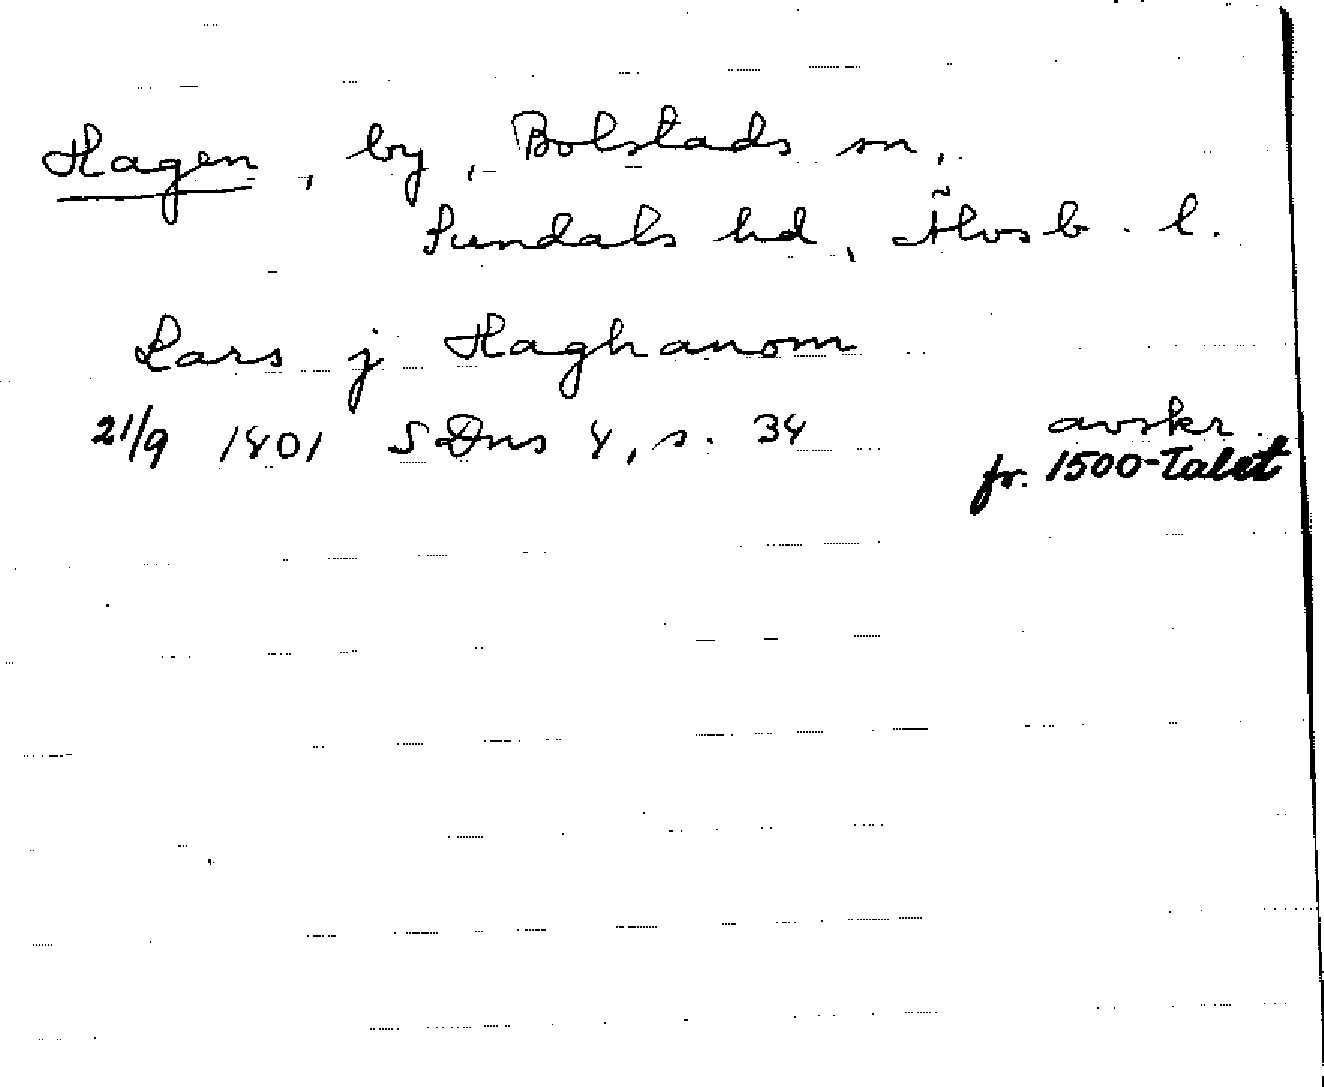 Hagen, by, Bolstads sn,
Sundals hd, Älvsb. l.
Lars j Haghanom
21/9 1401 SDns 4, s. 34 avskr.
fr. 1500-talet